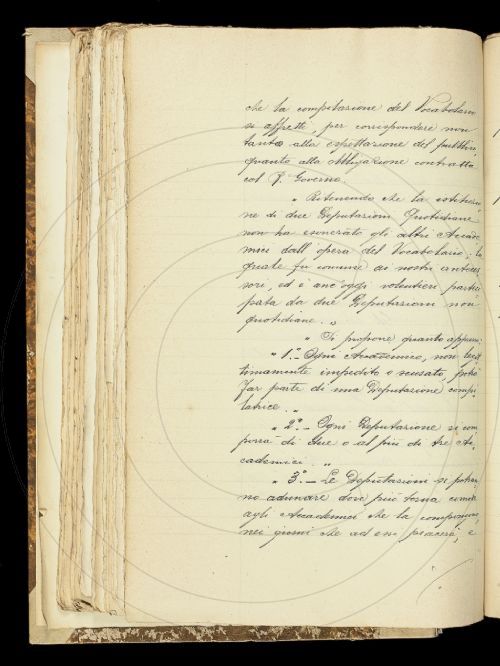 che la compilazione del Vocabolario
si affretti, per corrispondere non
tanto alla espettazione del pubblico,
quanto alla obbligazione contratta
col R. Governo.
" Ritenendo che la istituzio-
ne di due Deputazioni Quotidiane
non ha esonerato gli altri Accade-
mici dall'opera del Vocabolario; la
quale fu comune ai nostri anteces-
sori, ed è anc'oggi volentieri parteci-
pata da due Deputazioni non
quotidiane. "
" Si propone quanto appresso:
" 1.° - Ogni Accademico, non legit-
timamente impedito o scusato, potrà
far parte di una Deputazione compi-
latrice. "
" 2.° - Ogni Deputazione si com-
porrà di due o al più di tre Ac-
cademici. "
" 3.° - Le Deputazioni si potran-
no adunare dove più torna comodo
agli Accademici che la compongono,
nei giorni che ad essi piacerà, e